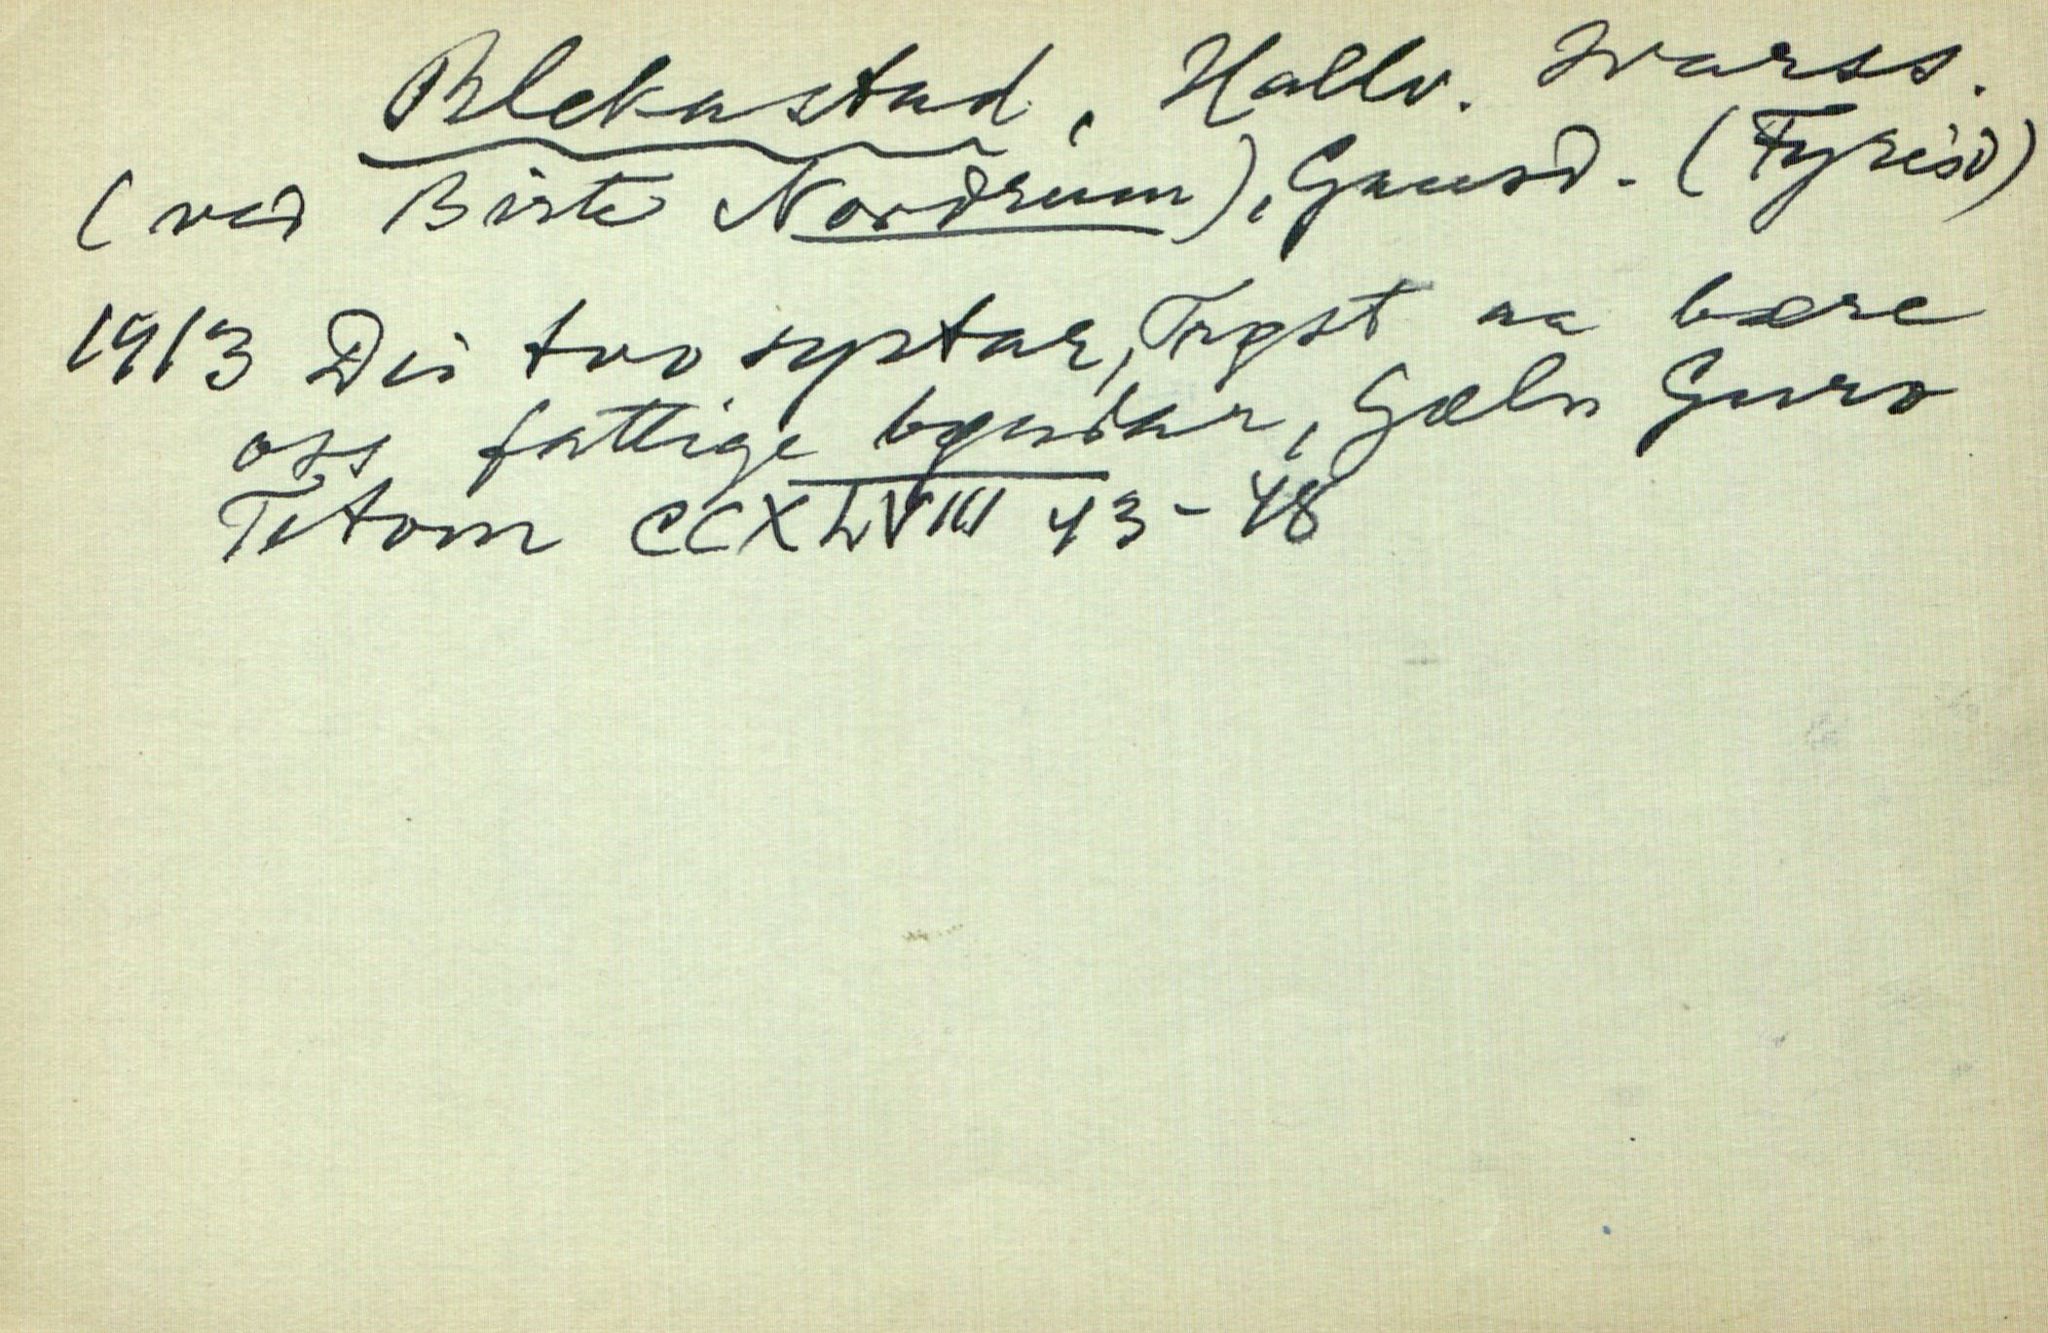 Blekastad, Hallv. Ivarss.
(ved Birte Nordrum), Gausd. (Fyresd)
1913 Dei tvo systar, Trøst aa bære
oss fattige bøndar, Gæln Guro
Tetom CCXLVIII 43-48